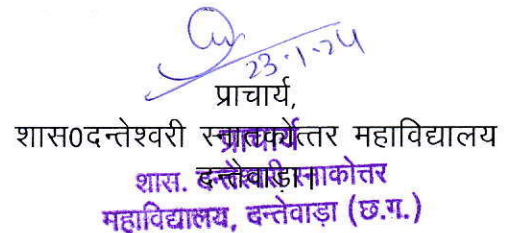 23.1.24
प्राचार्य,
शास0दन्तेश्वरी स्नातकोत्तर महाविद्यालय
प्राचार्य
दन्तेवाड़ा।
शास. दन्तेश्वरी स्नाकोत्तर
महाविद्यालय, दन्तेवाड़ा (छ.ग.)